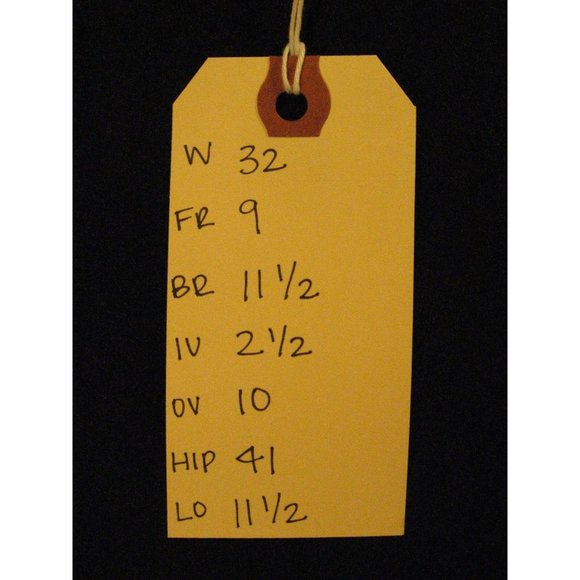 W 32
FR 9
BR 11 1/2
IV 2 1/2
OV 10
HIP 41
LO 11 1/2